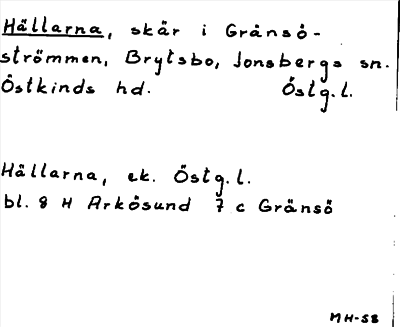 Hällarna, skär i Gränsö-
strömmen, Brytsbo, Jonsbergs sn.
Östkinds hd. Östg.l.
Hällarna, ek. Östg.l.
bl. 8 H Arkösund 7 c Gränsö
MH-58